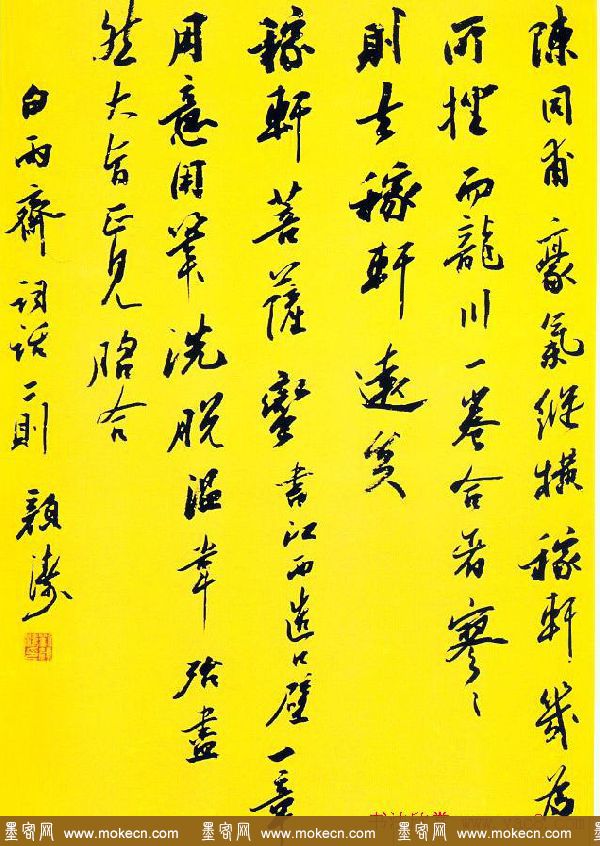 陳同甫豪氣縱横稼軒幾為
所挫而龍川一卷合者寥〻
則去稼軒遠矣
稼軒菩薩蠻書江西造口壁一章
用意用筆洗脱温韋殆盡
然大旨正見脗合
白雨齋詞話二則 顏濤
墨客网 www.mokecn.com 墨客网 www.mokecn.com 墨客网 www.mokecn.com